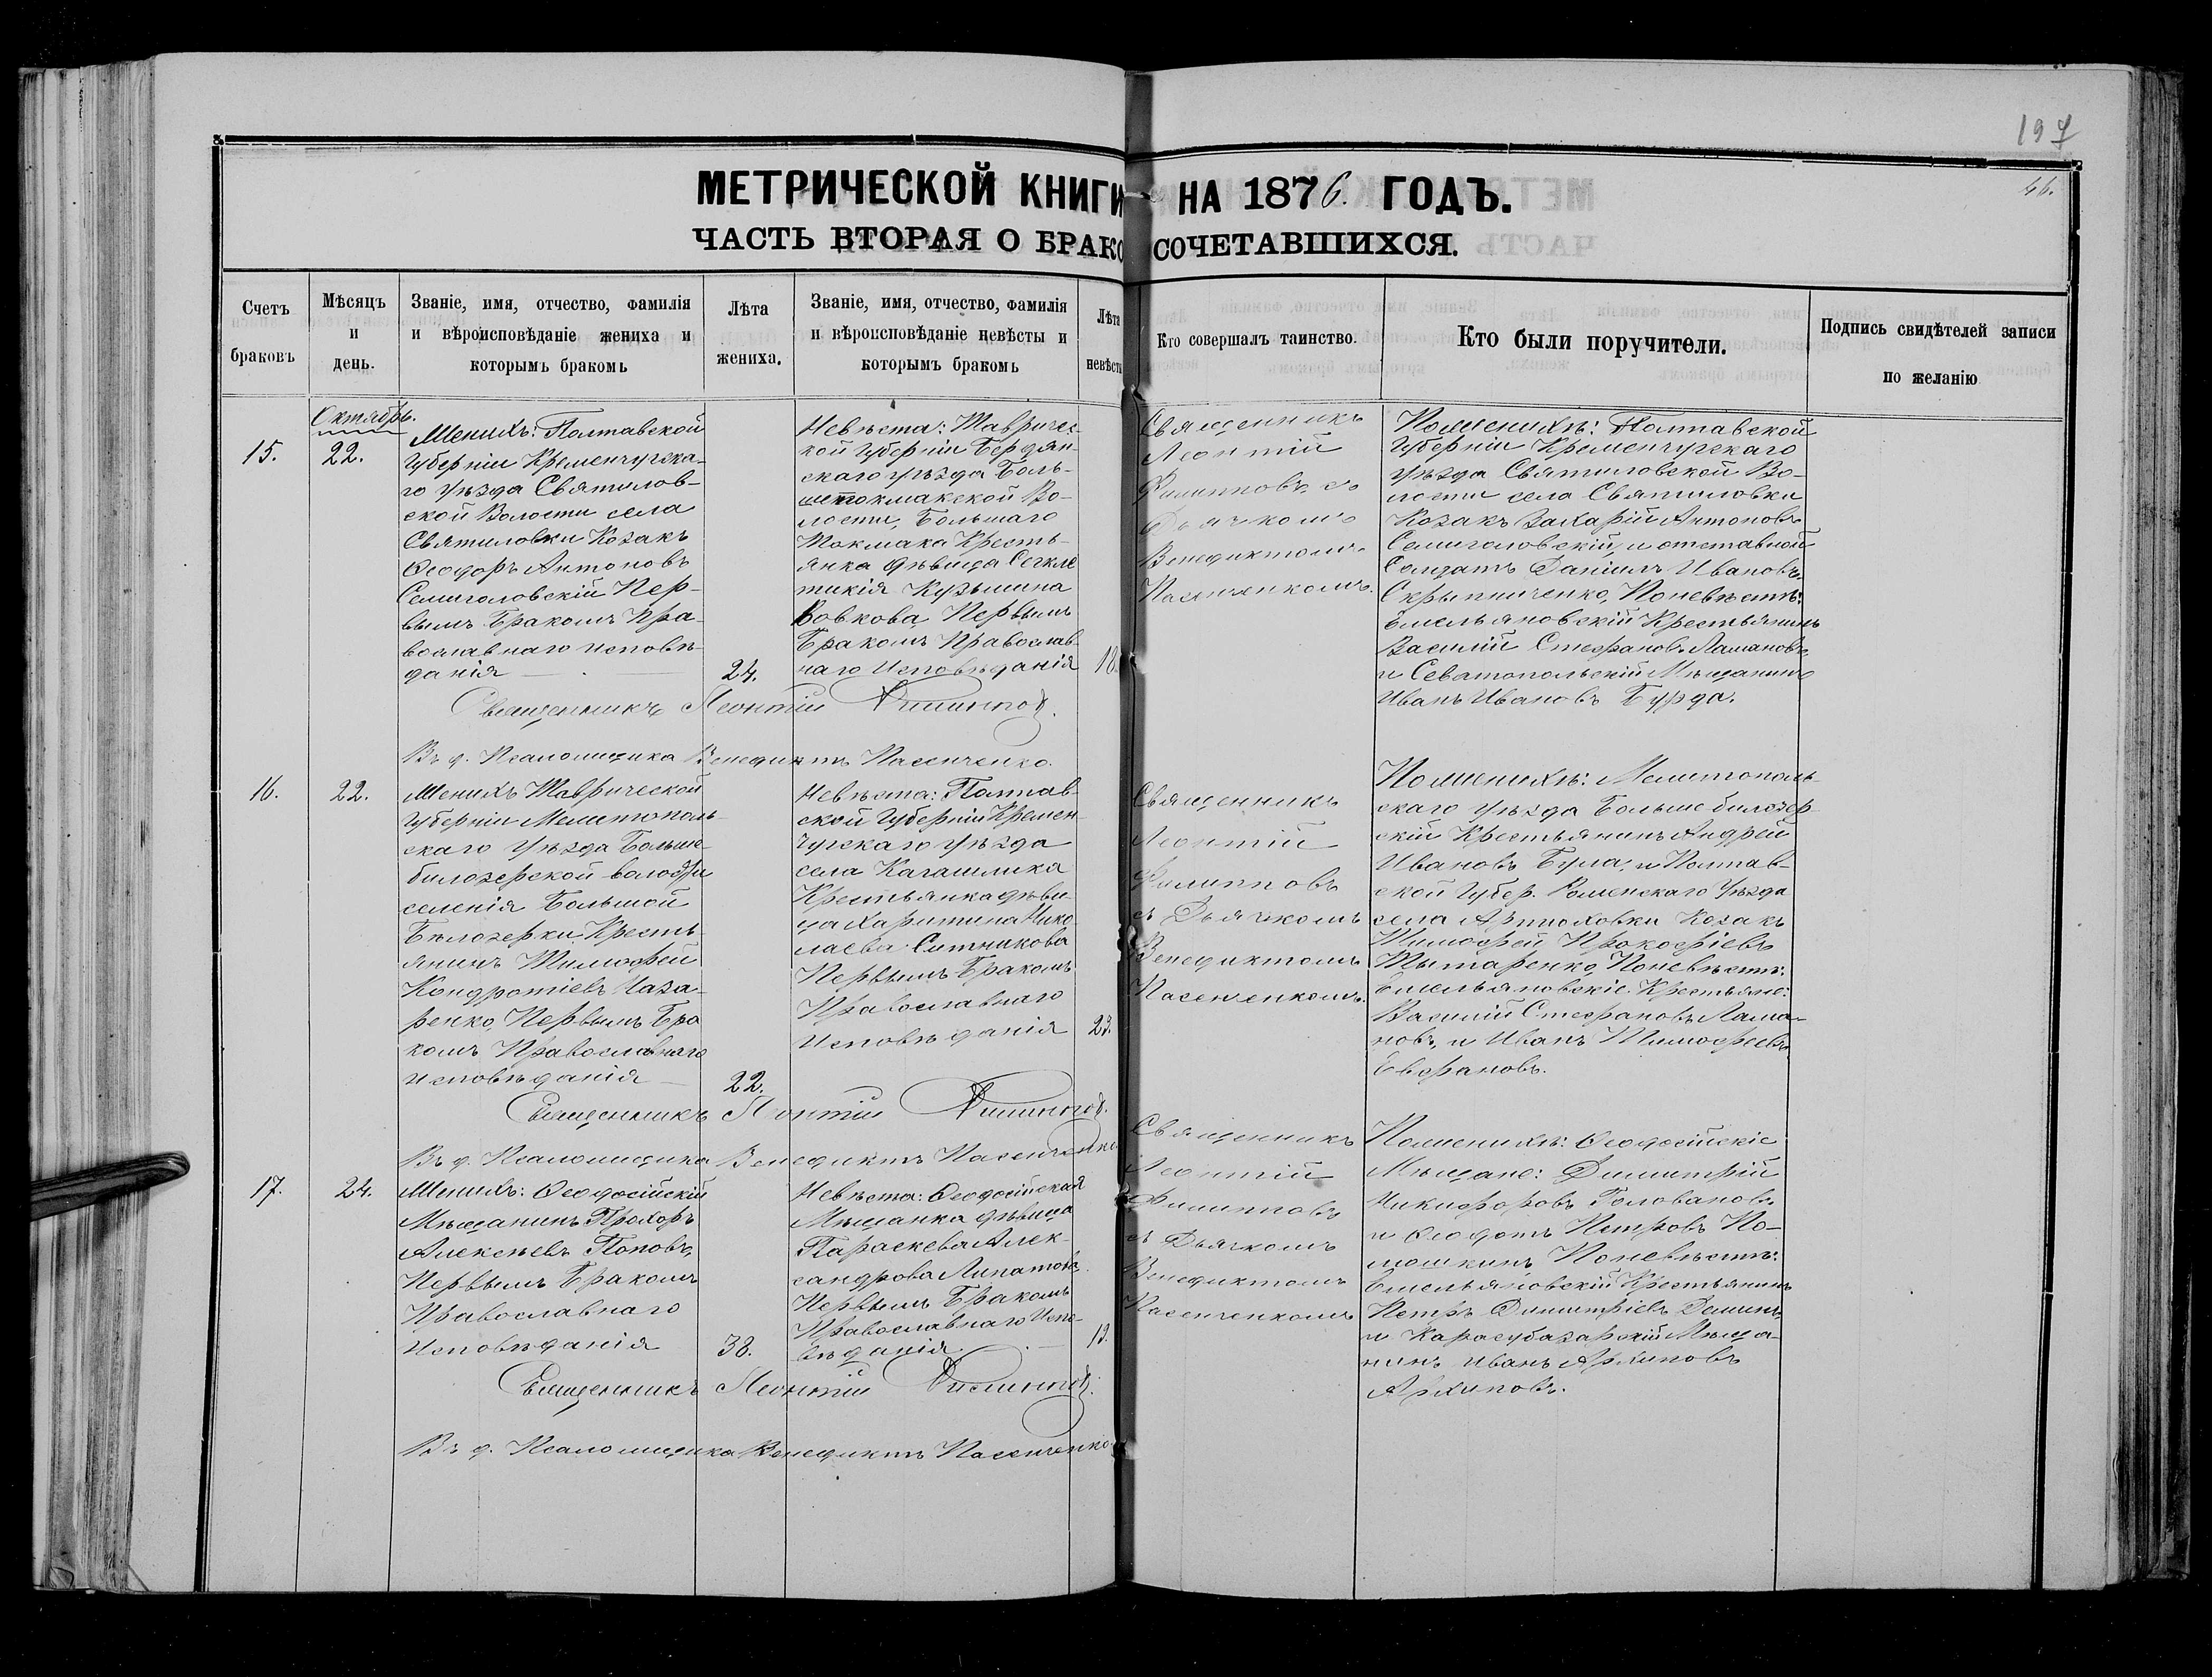 197
46.
МЕТРИЧЕСКОЙ КНИГИ НА 1876. ГОДЪ.
ЧАСТЬ ВТОРАЯ О БРАКОСОЧЕТАВШИХСЯ.
Счетъ
браковъ
Мѣсяцъ
и
день.
Званіе, имя, отчество, фамилія
и вѣроисповѣданіе жениха и
которымъ бракомъ
Лѣта
жениха.
Званіе, имя, отчество, фамилія
и вѣроисповѣданіе невѣсты и
которымъ бракомъ
Лѣта
невѣсты
Кто совершалъ таинство.
Кто были поручители.
Подпись свидѣтелей записи
по желанію
Октябрь.
15.
22.
Женихъ: Полтавской
Губерніи Кременчугска-
го уѣзда Святилов-
ской Волости села
Святиловки Козакъ
Ѳеодоръ Антоновъ
Семиголовскій Пер-
вымъ Бракомъ Пра-
вославнаго исповѣ-
данія
24.
Невѣста: Тавричес-
кой Губерніи Бердян-
скаго уѣзда Боль-
шетокмакской Во-
лости, Большаго
Токмака Кресть-
янка дѣвица
Кузьмина
Вовкова, Первымъ
Бракомъ Православ-
наго Исповѣданія
18.
Священникъ
Леонтій
Филипповъ съ
Дьячкомъ
Венедиктомъ
Пасенченкомъ.
Пожениху: Полтавской
Губерніи Кременчугскаго
уѣзда Святиловской Во-
лости села Святиловки
Козакъ Захарій Антоновъ
Семиголовскій, и отставной
Солдатъ Даніилъ Ивановъ
Скрыпниченко, Поневѣстѣ:
Емельяновскій Крестьянинъ
Василій Стефановъ Лашановъ
и Севатопольскій Мѣщанинъ
Иванъ Ивановъ Бурда.
Священникъ Леонтій Филипповъ.
Въ д. Псаломщика Венедиктъ Пасенченко.
16.
22.
Женихъ Таврической
Губерніи Мелитополь-
скаго Уѣзда Больше-
билозерской волости
селенія Большой
Бѣлозерки, Кресть-
янинъ Тимофей
Кондротіевъ Наза-
ренко, Первымъ Бра
комъ Православнаго
исповѣданія
22.
Невѣста: Полтав-
ской Губерніи Кремен-
чугскаго уѣзда
села Кагамлика
Крестьянка дѣви-
ца Харитина Нико-
лаева Ситникова
Первымъ Бракомъ
Православнаго
Исповѣданія
23.
Священникъ
Леонтій
Филипповъ
съ Дьячкомъ
Венедиктомъ
Пасенченкомъ.
Пожениху: Мелитополь-
скаго уѣзда Больше билозер
скій Крестьянинъ Андрей
Ивановъ Була, и Полтав-
ской Губер. Роменскаго Уѣзда
села Артюховки Козакъ
Тимофей Прокофіевъ
Тытаренко, Поневѣстѣ:
Емельяновскіе Крестьяне:
Василій Стефановъ Лаша-
новъ, и Иванъ Тимофеевъ
Евфановъ.
Священникъ Леонтій Филипповъ.
Въ д. Псаломщика Венедиктъ Пасенченко
17.
24.
Женихъ: Ѳеодосійскій
Мѣщанинъ Прохоръ
Алексѣевъ Поповъ,
Первымъ Бракомъ
Православнаго
Исповѣданія
38.
Невѣста: Ѳеодосійская
Мѣщанка дѣвица
Параскева Алек-
сандрова Липатова
Первымъ Бракомъ
Православнаго Испо-
вѣданія.
19.
Священникъ
Леонтій
Филипповъ
съ Дьячкомъ
Венедиктомъ
Пасенченкомъ
Пожениху: Ѳеодосійскіе
Мѣщане: Димитрій
Никифоровъ Головановъ
и Ѳеодотъ Петровъ По-
мошкинъ Поневѣстѣ:
Емельяновскій Крестьянинъ
Петръ Димитріевъ Деминъ,
и Карасубазарскій Мѣща-
нинъ Иванъ Архиповъ
Архиповъ.
Священникъ Леонтій Филипповъ.
Въ д. Псаломщика Венедиктъ Пасенченко